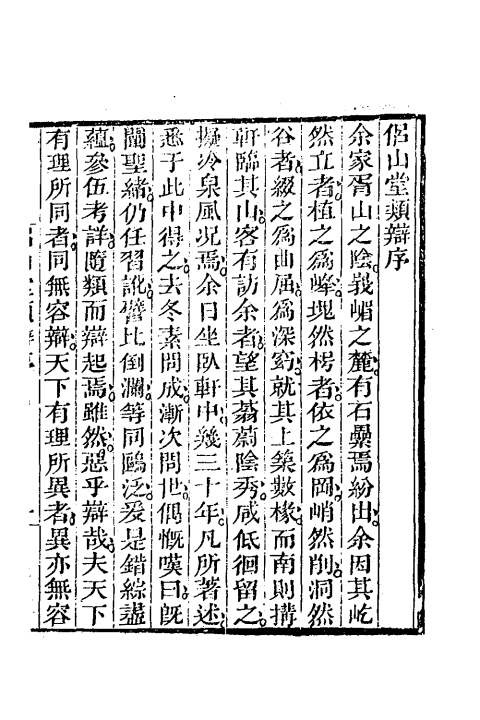 侶山堂類辯序
余家胥山之陰。峩嵋之麓。有石纍焉紛出。余因其屹
然立者。植之爲峰。塊然楞者。依之爲岡。峭然削洞然
谷者。綴之爲曲屈。爲深窮。就其上築數椽。而南則搆
軒臨其山。客有訪余者。望其蓊蔚陰秀。咸低徊留之。
擬冷泉風况焉。余日坐臥軒中。幾三十年。凡所著述。
悉于此中得之。去冬素問成。漸次問世。偶慨嘆曰。旣
闡聖緒。仍任習訛。譬比倒瀾。等同鷗泛。爰是錯綜盡
蘊。參伍考詳。隨類而辯起焉。雖然。惡乎辯哉。夫天下
有理所同者。同無容辯。天下有理所異者。異亦無容